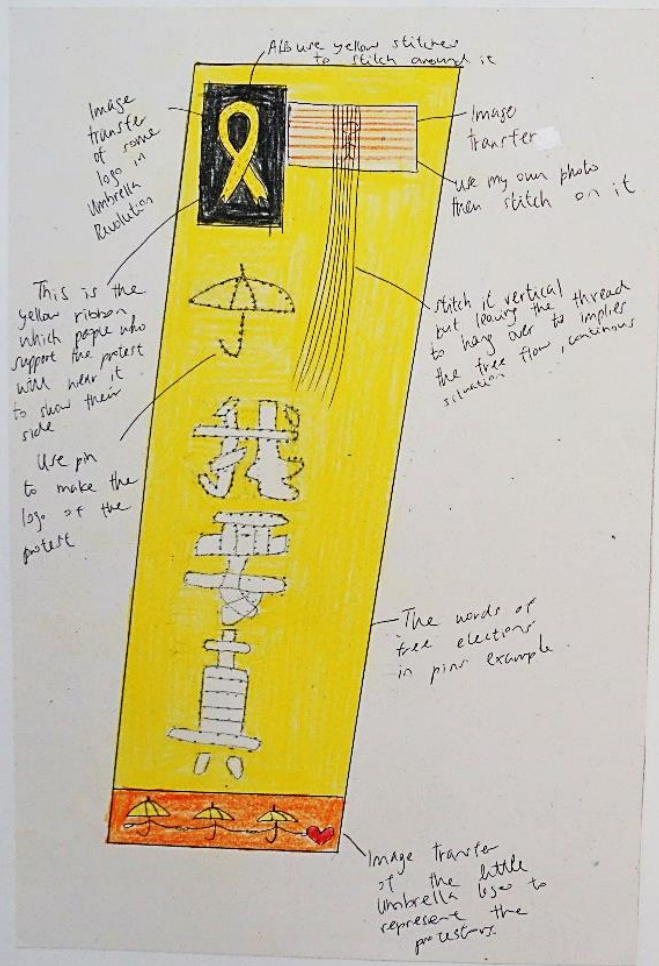 Also use yellow stitches
to stitch around it
Image
transfer
of some
logo in
Umbrella
Revolution
Image
transfer
use my own photo
then stitch on it
This is the
yellow ribbon
which people who
support the protest
will wear it
to show their
side
stitch it vertical
but leaving the thread
to hang over to implies
the free flow, continous
situation
Use pin
to make the
logo of the
protest
我
要
真
The words of
free elections
in pins example
Image transfer
of the little
Umbrella logo to
represent the
protestors.